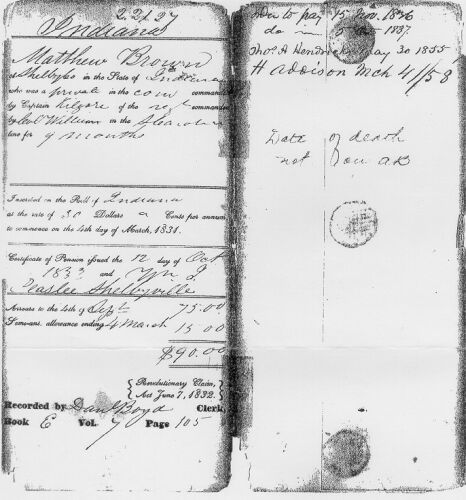 22127
Indiana
Matthew Brown
of Shelby Co in the State of Indiana
who was a private in the com commanded
by Captain Kilgore of the regt commanded
by Col William in the
line for 9 months
Inscribed on the Roll of Indiana
at the rate of 30 Dollars Cents per annum
to commence on the 4th day of March, 1831.
Certificate of Pension issued the 12 day of Oct
1833 and Wm J.
Peaslee Shelbyville
Arrears to the 4th of Sept 75.00
Semi-ann. allowance ending 4 March 15 00
$90.00
{ Revolutionary Claim, }
{ Act June 7, 1832. }
Recorded by Danl Boyd Clerk,
Book E Vol. 7 Page 105
to pay 15 Nov. 1836
do 1837.
Thos A Hendricks May 30 1855
H Addison Mch 4/58
Date of death
not